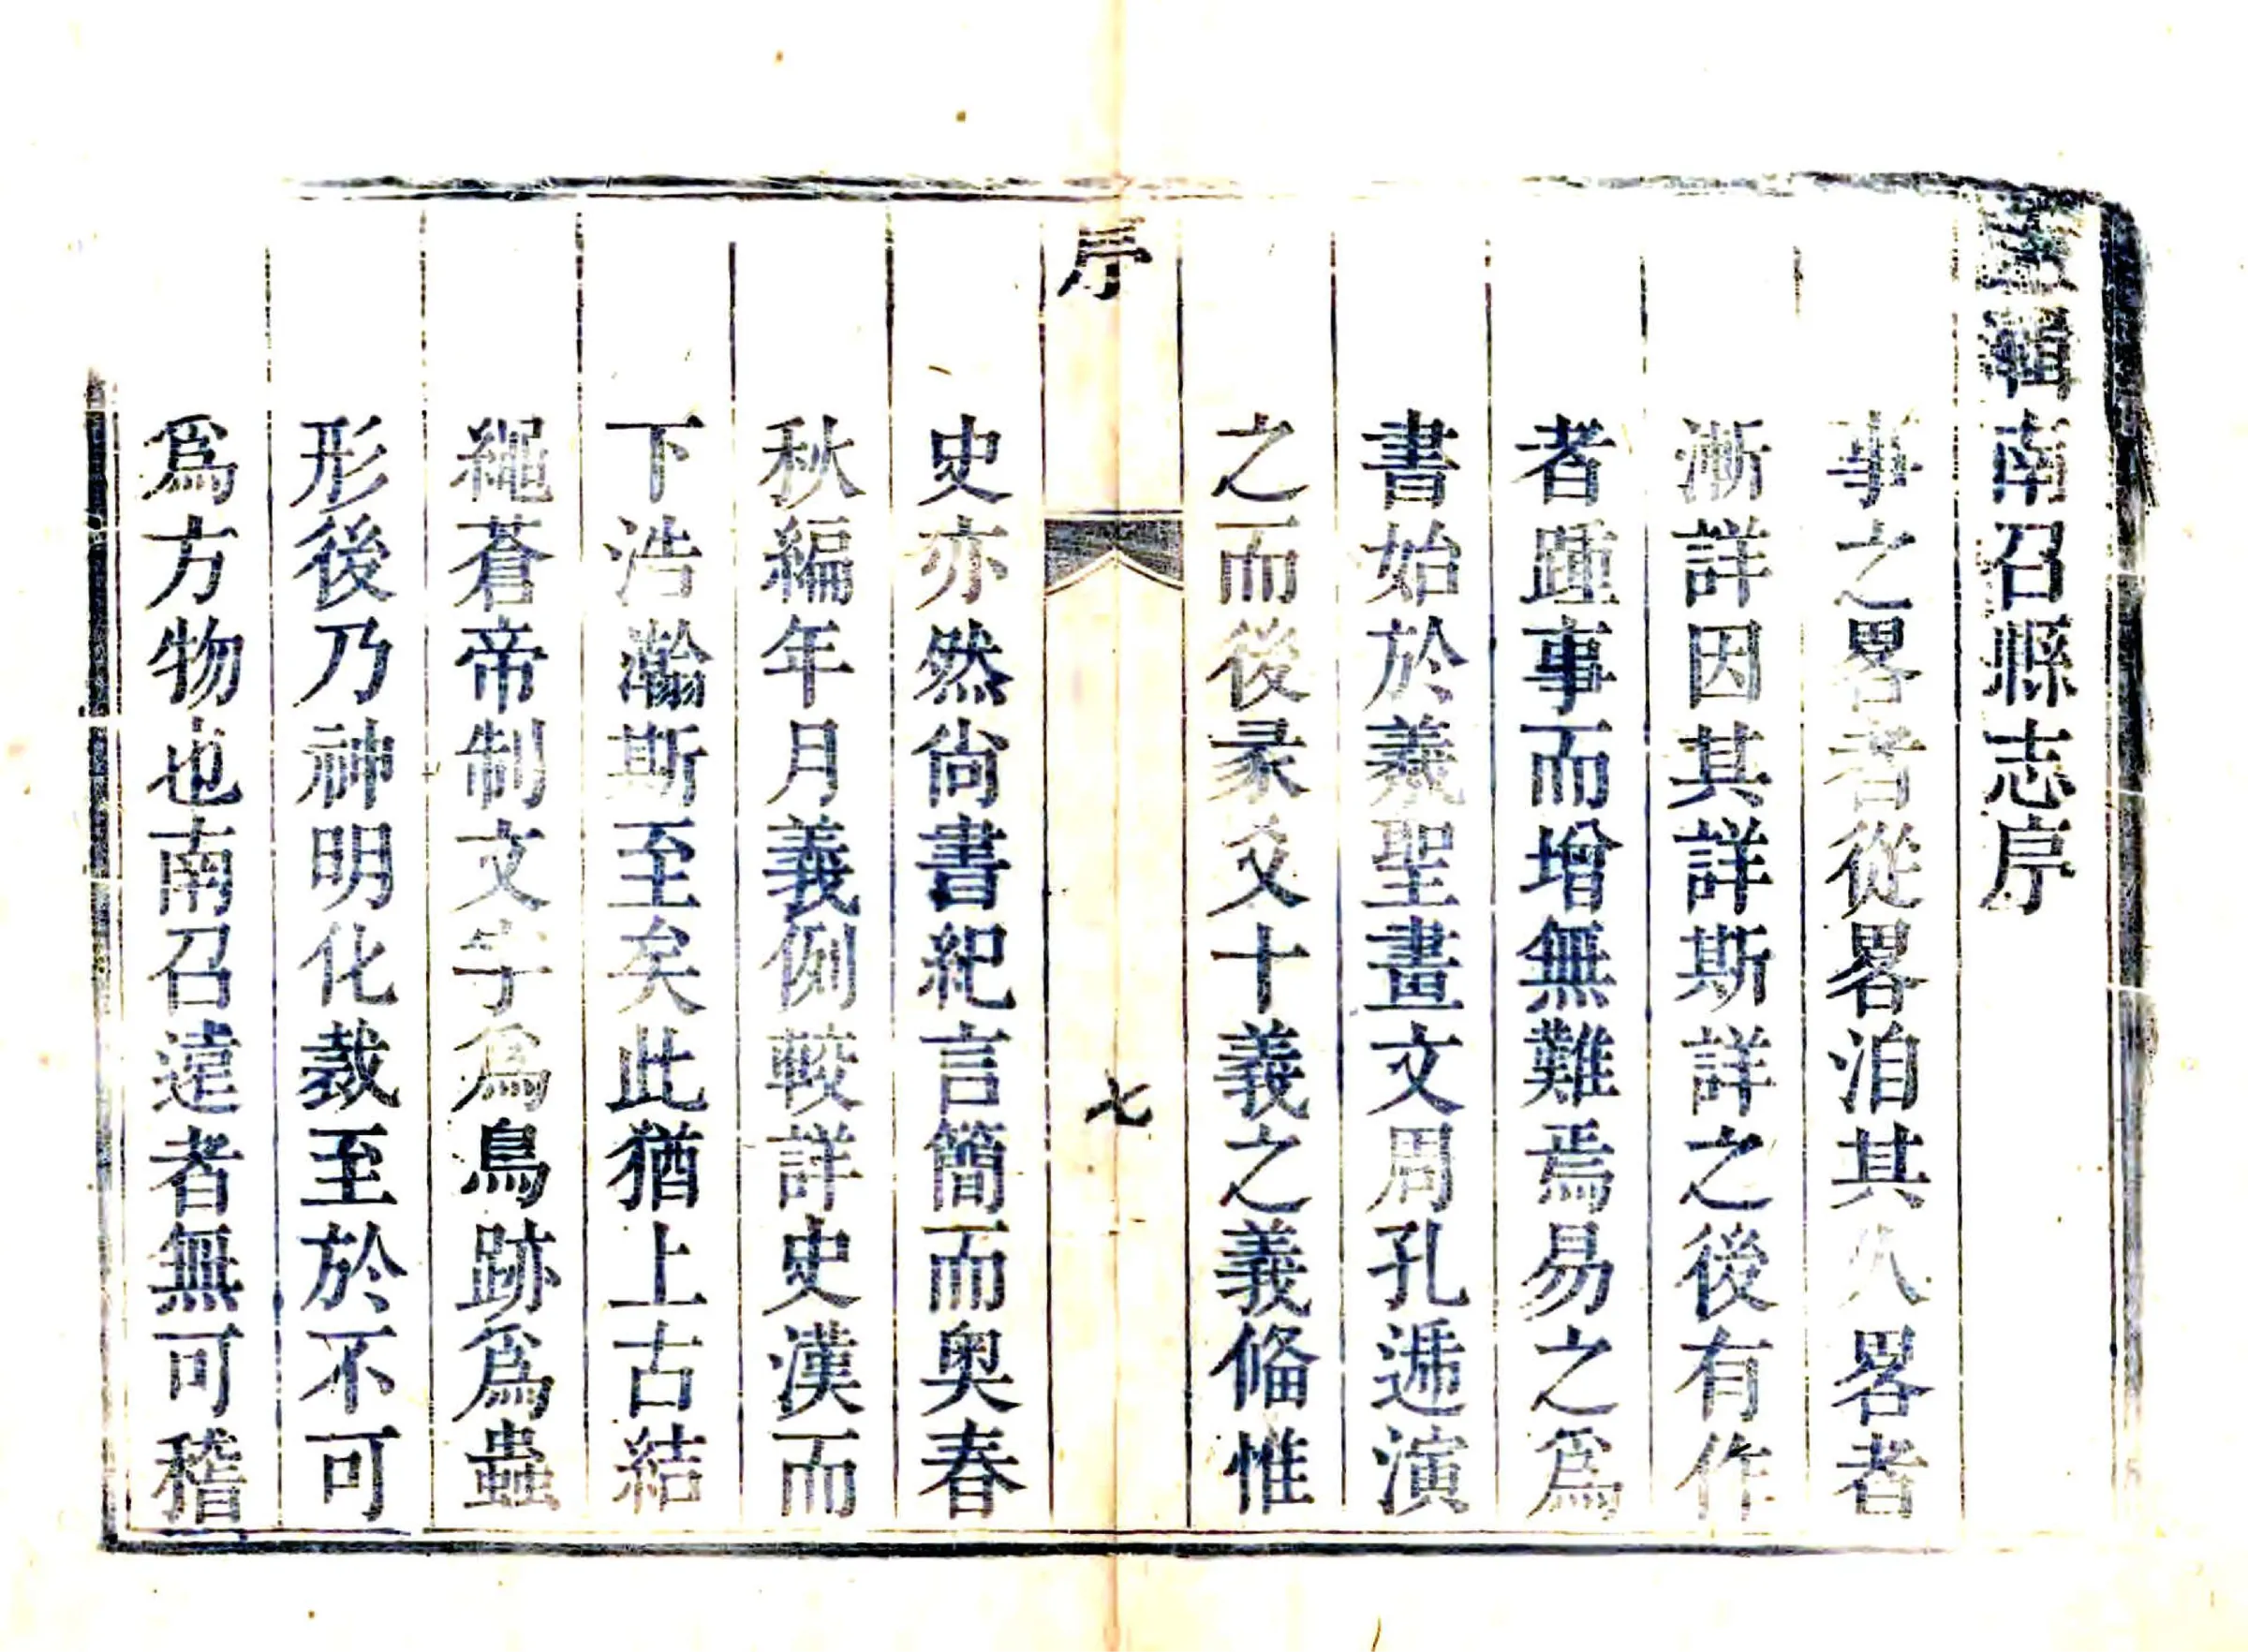 重輯南召縣志序
事之畧者從畧洎其久畧者
漸詳因其詳斯詳之後有作
者踵事而增無難焉易之爲
書始於羲聖畫文周孔遞演
之而後彖爻十義之義俻惟
序
七
史亦然尙書紀言簡而奥春
秋編年月義例較詳史漢而
下浩瀚斯至矣此猶上古結
繩蒼帝制文字爲鳥跡爲蟲
形後乃神明化裁至於不可
爲方物也南召遠者無可稽